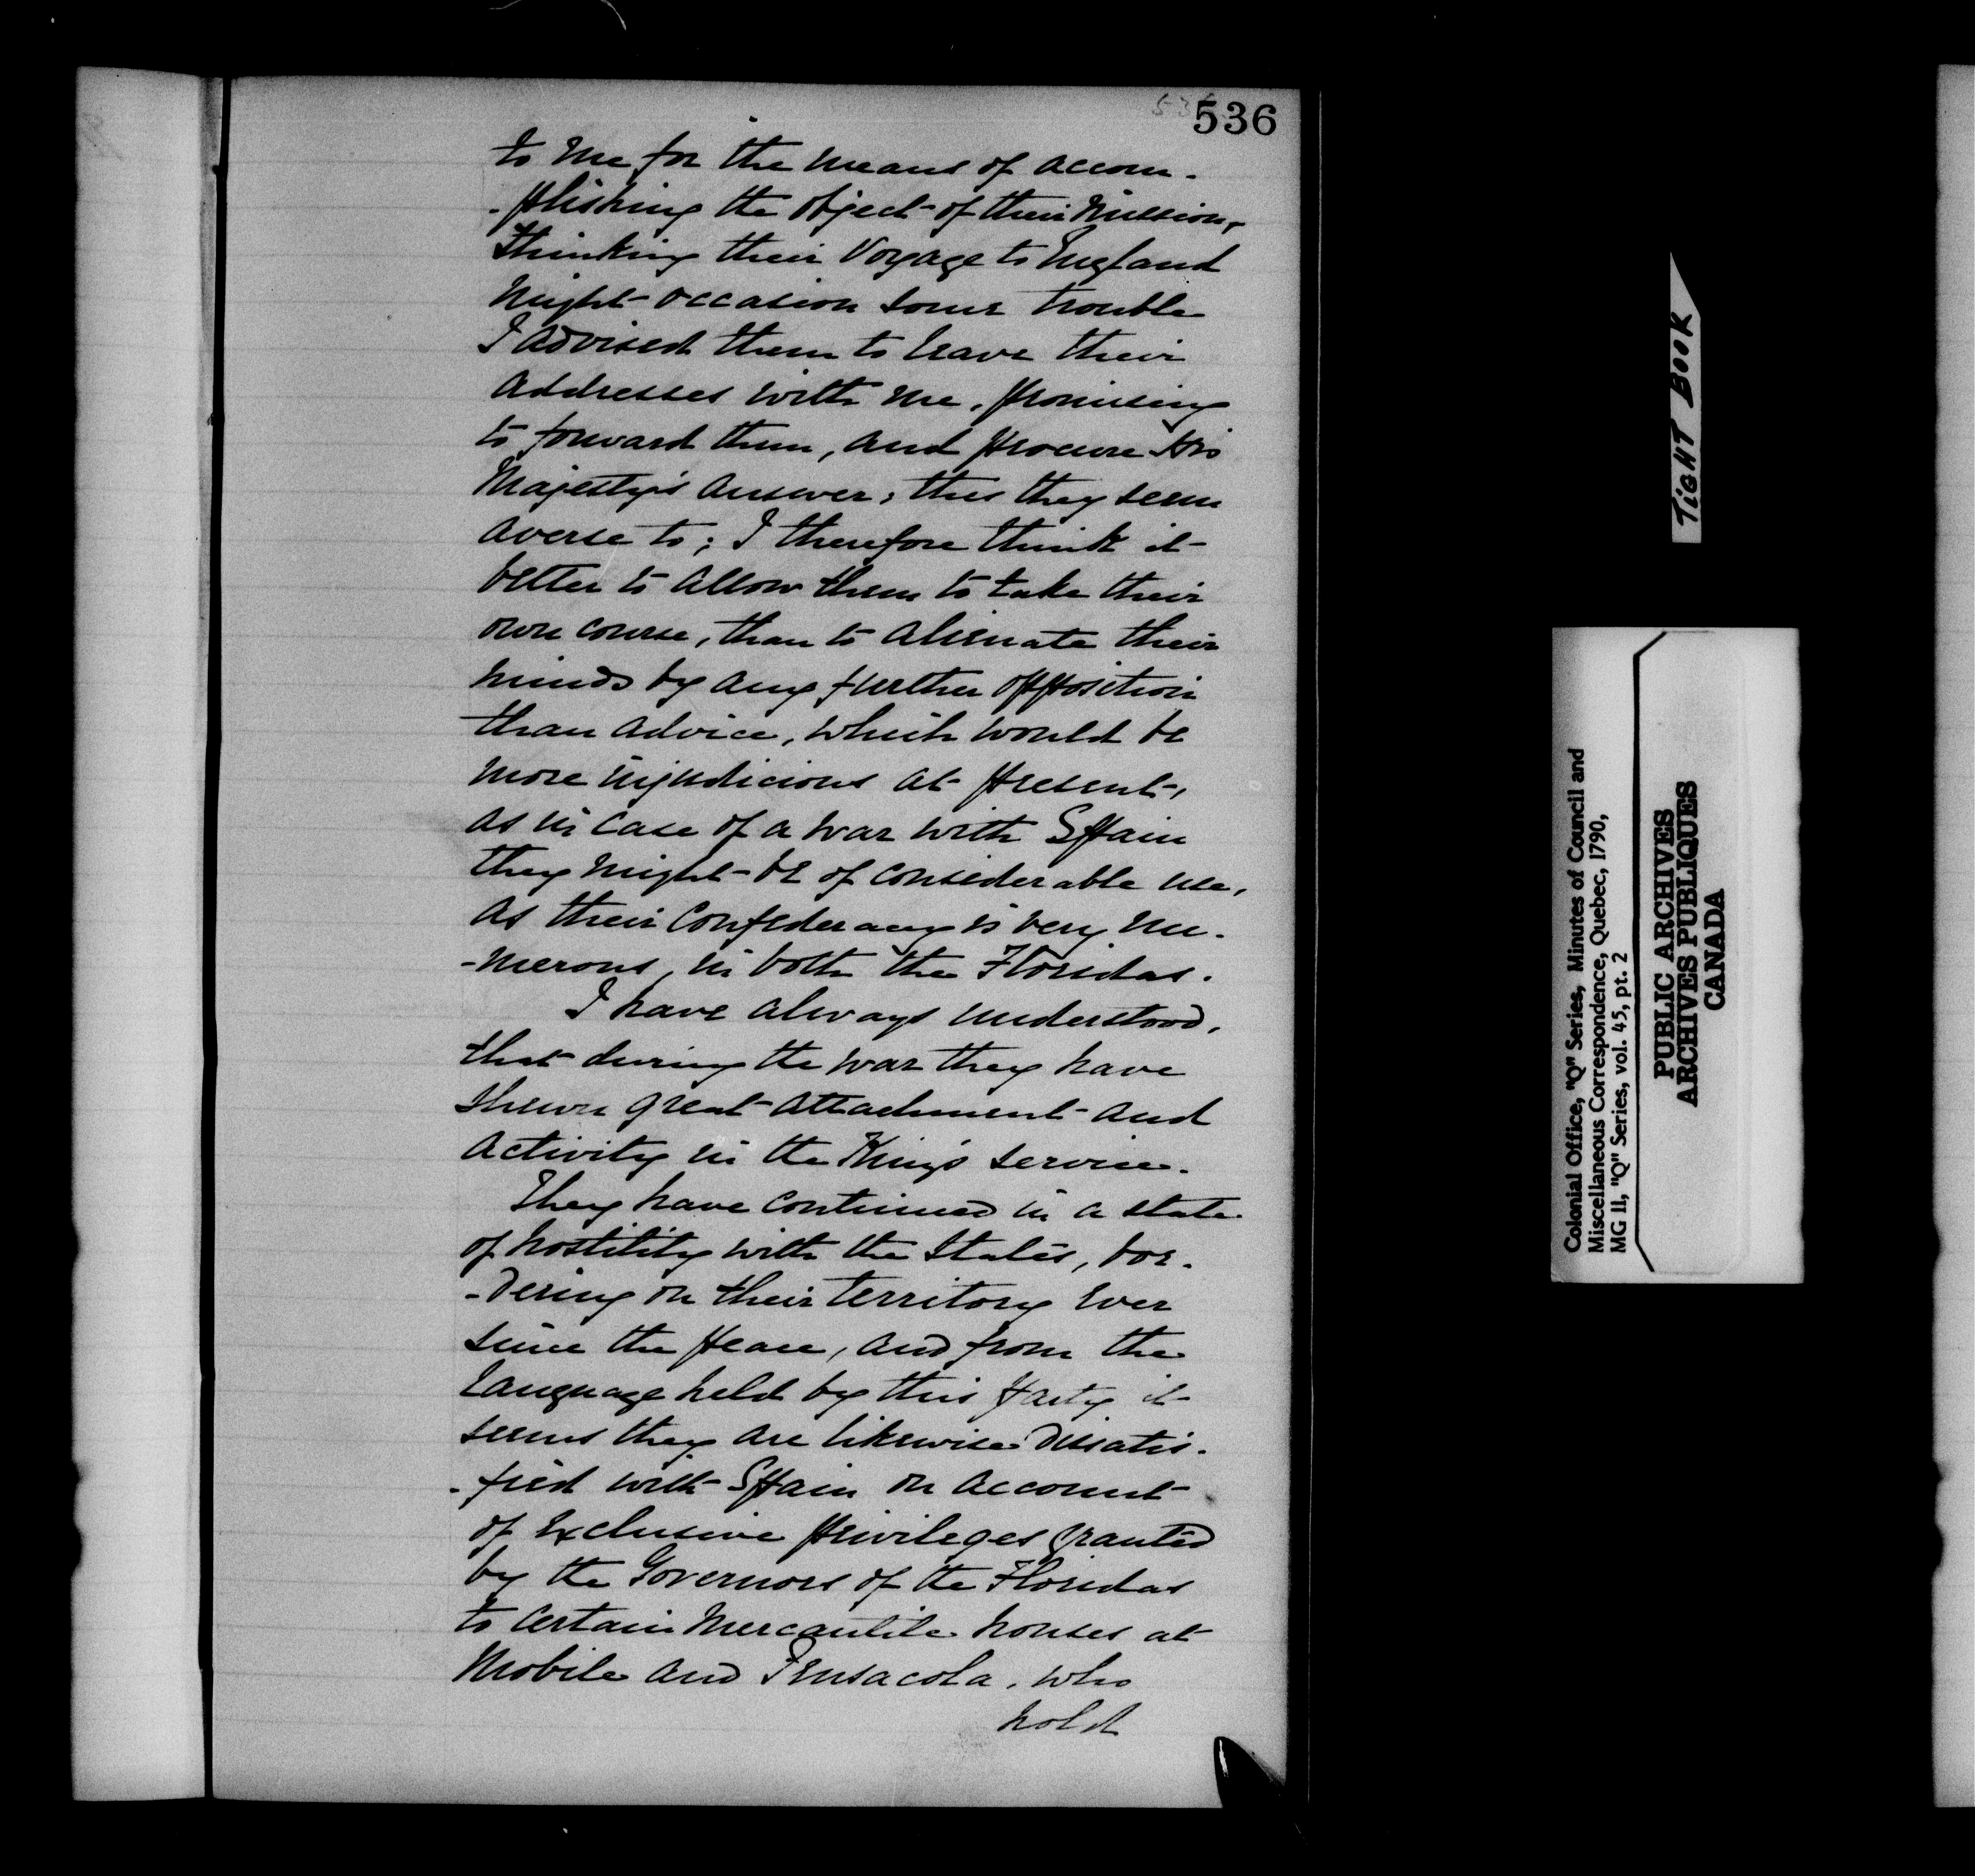 536
to me for the means of accom-
-plishing the object of their Mission,
thinking their Voyage to England
might occasion some trouble
I advised them to leave their
addresses with me, promising
to forward them, and procure His
Majesty's answer, this they seem
averse to; I therefore think it
better to allow them to take their
own course, than to alienate their
minds by any further opposition
than advice, which would be
more injudicious at present,
as in case of a war with Spain
they might be of considerable use,
as their Confederacy is very nu-
-merous, in both the Floridas.
I have always understood,
that during the war they have
shewn great attachment and
activity in the King's service.
They have continued in a state
of hostility with the States, bor-
-dering on their territory ever
since the peace, and from the
language held by this party it
seems they are likewise dissatis-
-fied with Spain on account
of exclusive privileges granted
by the Governors of the Floridas
to certain Mercantile houses at
Mobile and Pensacola, who
hold
TIGHT BOOK
Colonial Office, "Q" Series, Minutes of Council and
Miscellaneous Correspondence, Quebec, 1790,
MG 11, "Q" Series, vol. 45, pt. 2
PUBLIC ARCHIVES
ARCHIVES PUBLIQUES
CANADA